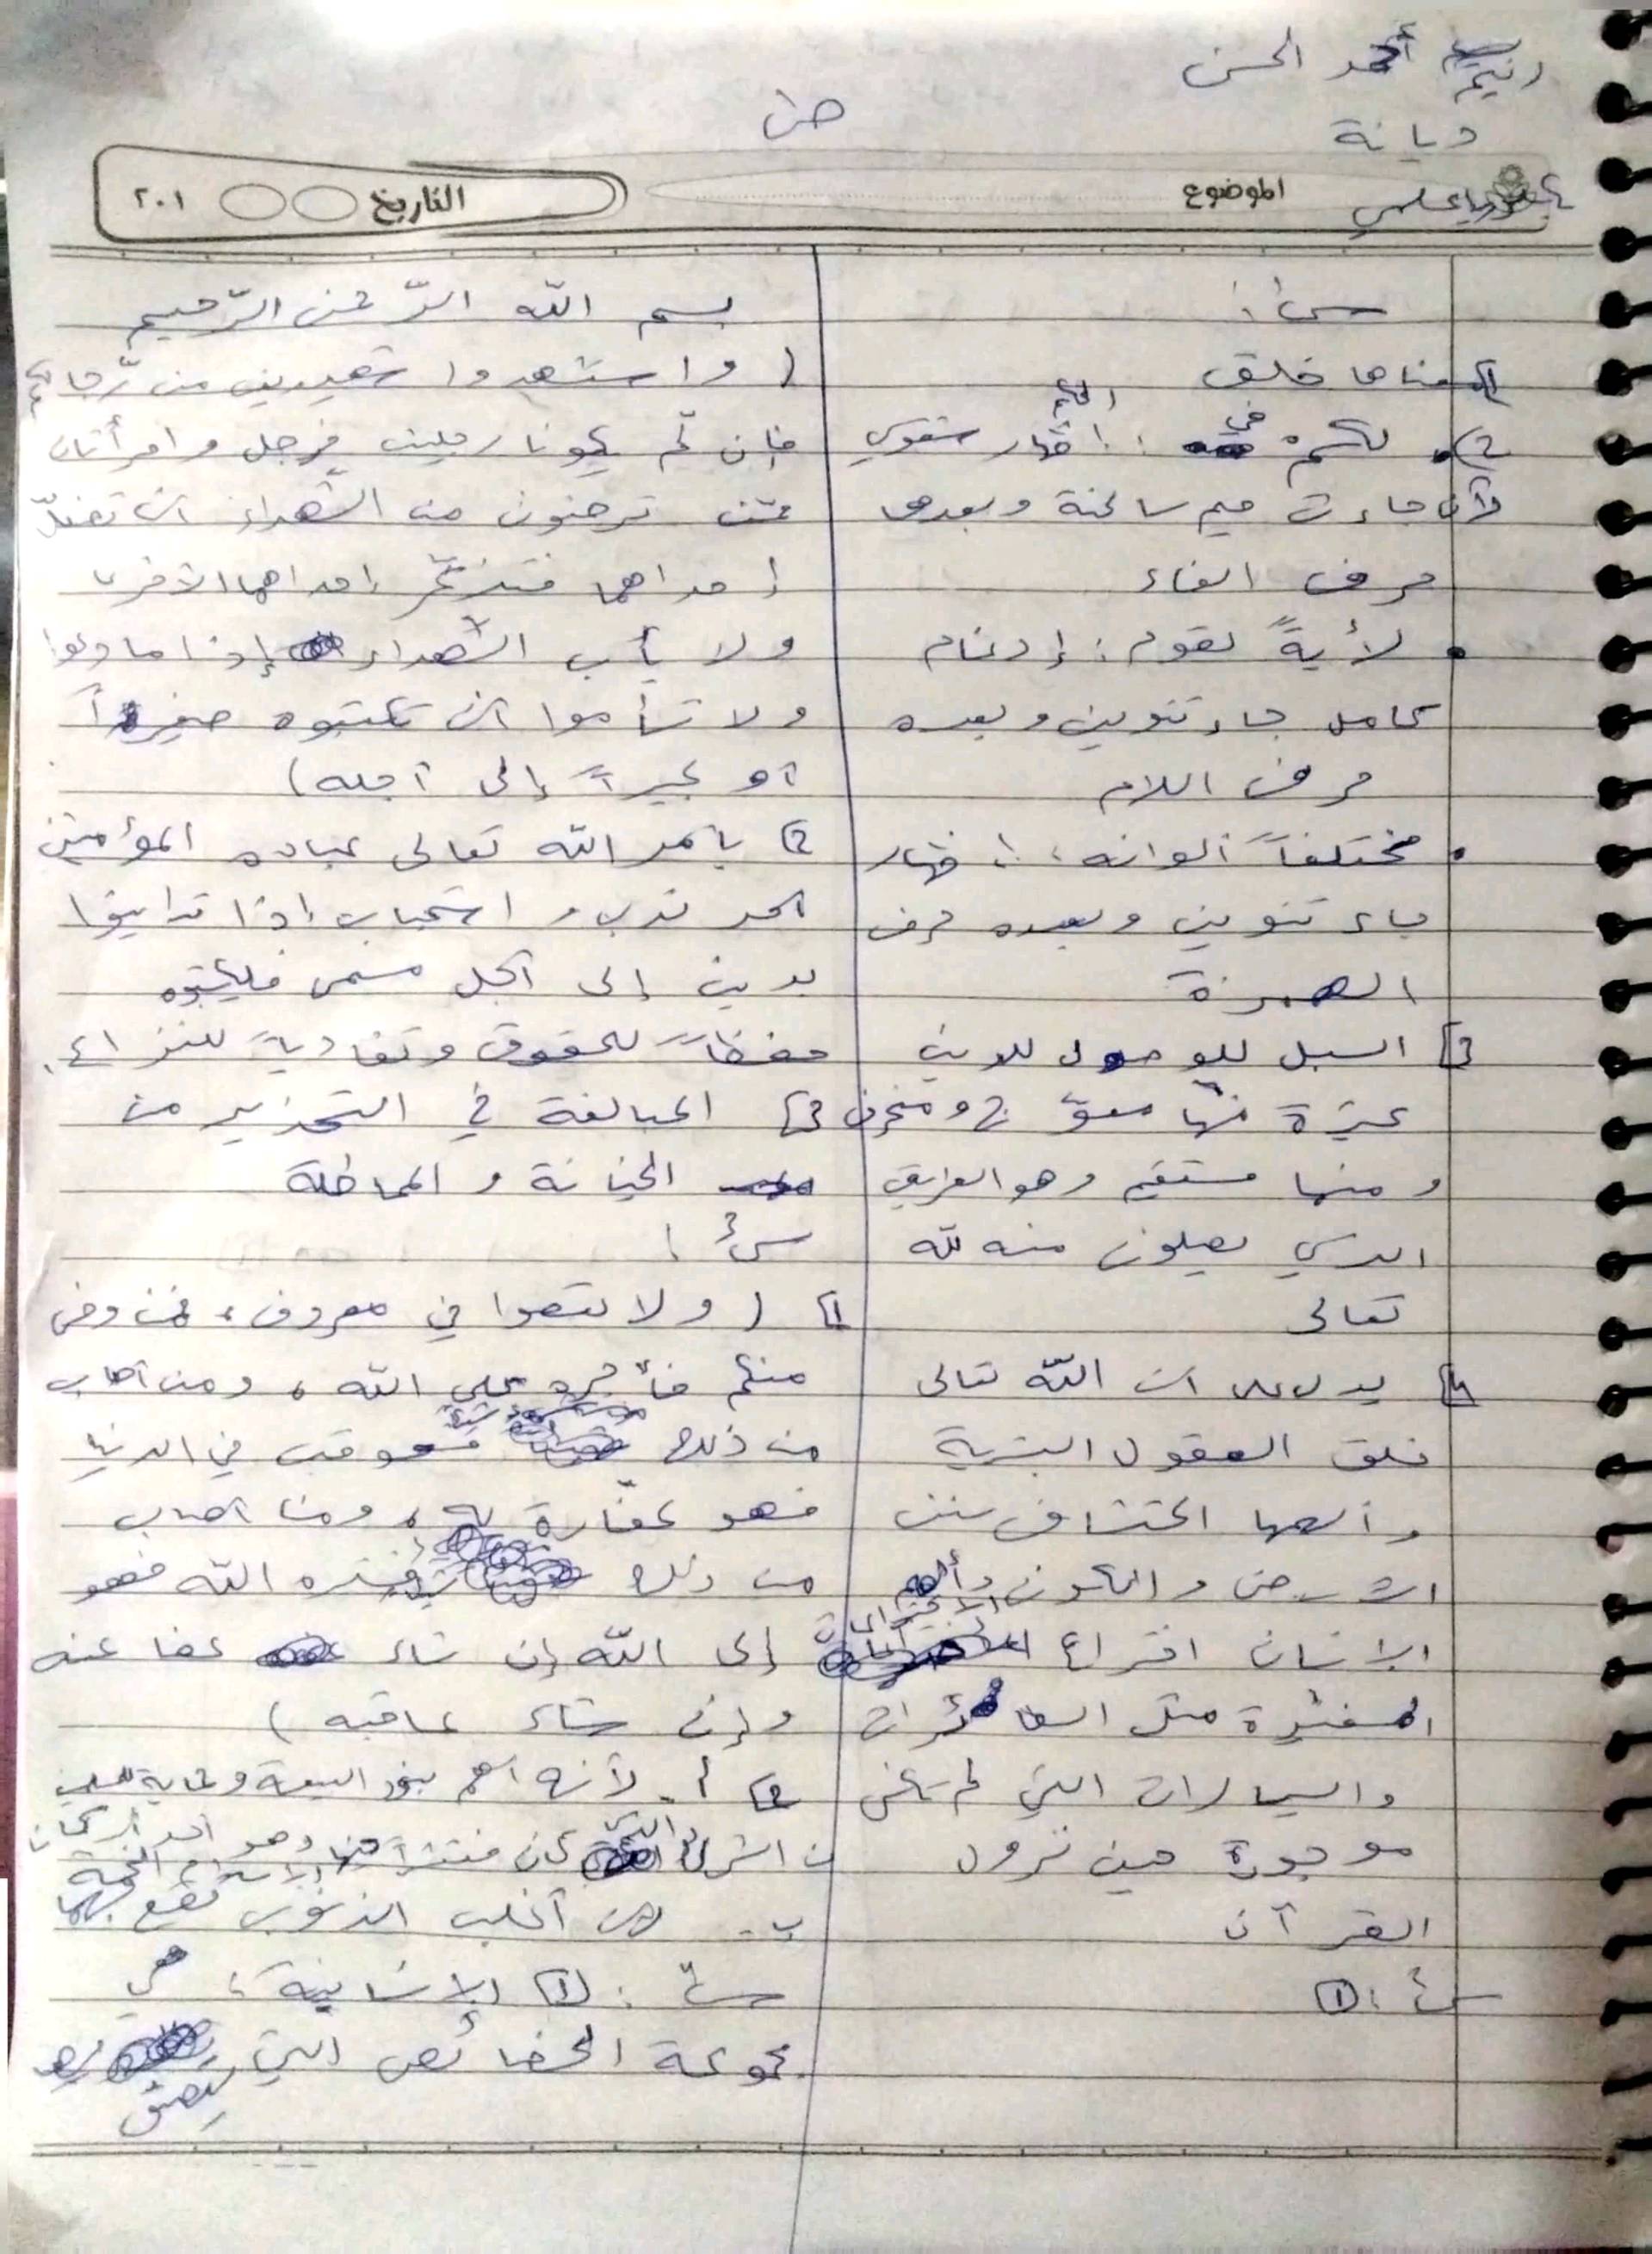 رنيم أحمد الحسن
حل
ديانة
بكلوريا علمي
الموضوع
التاريخ
٢٠١
س١:
1) معناها خلق
2) • لكم في: إظهار شفوي
لأن جاءت ميم ساكنة وبعدها
حرف الفاء
• لأيةً لقوم: إدغام
كامل جاء تنوين وبعده
حرف اللام
• مختلفاً ألوانه: إظهار
جاء تنوين وبعده حرف
الهمزة
3) السبل للوصول للدين
كثيرة منها معوّج ومنحرف
ومنها مستقيم وهو الطريق
الذي يصلون منه لله
تعالى
4) يدل على أن الله تعالى
خلق العقول البشرية
وألهمها اكتشاف سنن
الأرض والكون وألهم
الإنسان اختراع الاختراعات
المفيدة مثل الطائرات
والسيارات التي لم تكن
موجودة حين نزول
القرآن
س٢: 1)
بسم الله الرّحمن الرّحيم
(واستشهدوا شهيدين من رّجالكم
فإن لّم يكونا رجلين فرجل وامرأتان
ممّن ترضون من الشّهداء أن تضلّ
إحداهما فتذكّر إحداهما الأخرى
ولا يأب الشّهداء إذا ما دعوا
ولا تسأموا أن تكتبوه صغيراً
أو كبيراً إلى أجله)
2) يأمر الله تعالى عباده المؤمنين
أمر ندب واستحباب إذا تداينوا
بدين إلى أجل مسمى فليكتبوه
حفظاً للحقوق وتفادياً للنزاع.
3) المبالغة في التحذير من
الخيانة والمماطلة
س٣:
1) (ولا تعصوا في معروف، فمن وفى
منكم فأجره على الله، ومن أصاب
من ذلك شيئاً فعوقب في الدنيا
فهو كفّارة له، ومن أصاب
من ذلك شيئاً فستره الله فهو
إلى الله إن شاء عفا عنه
وإن شاء عاقبه)
2) أ- لأنه أهم بنود البيعة
الشرك الذي كان منتشراً وهو أحد أركان
الإسلام الخمسة
ب- لأن أغلب الذنوب تقع بهما
س٤: 1) الإنسانية: هي
مجموعة الخصائص التي